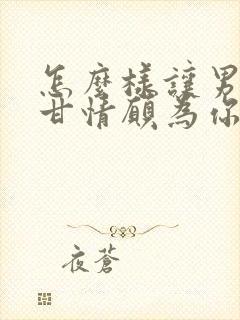 怎麼樣讓男
甘情願為你
夜蒼